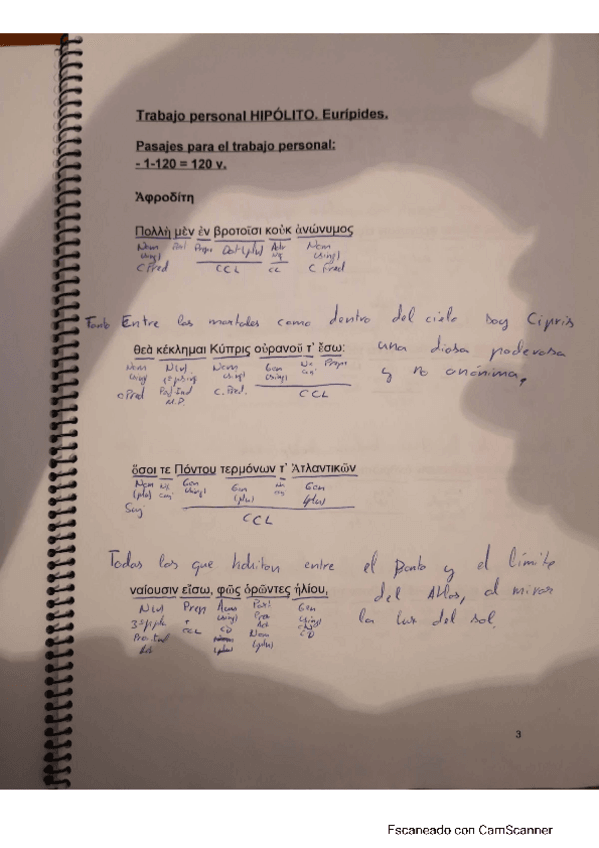 Trabajo personal HIPÓLITO. Eurípides.
Pasajes para el trabajo personal:
- 1-120 = 120 v.
Ἀφροδίτη
Πολλὴ μὲν ἐν βροτοῖσι κοὐκ ἀνώνυμος
Nom Prep Dat (plu) Nom
(sing) (sing)
C Pred CCL CC C. Pred
Tanto Entre los mortales como dentro del cielo soy Cipris
θεὰ κέκλημαι Κύπρις οὐρανοῦ τ' ἔσω: una diosa poderosa
y no anónima,
Nom Nom Gen Prep
(sing) (sing) (sing)
C Pred C. Pred. CCL
M.P.
ὅσοι τε Πόντου τερμόνων τ' Ἀτλαντικῶν
Nom Gen Gen Gen
(plu) (sing) (plu) (plu)
Suj CCL
Todos los que habitan entre el Ponto y el límite
ναίουσιν εἴσω, φῶς ὁρῶντες ἡλίου, del Atlas, al mirar
la luz del sol.
Prep Part Gen
CCL CD Nom CD
(plu)
3
Escaneado con CamScanner